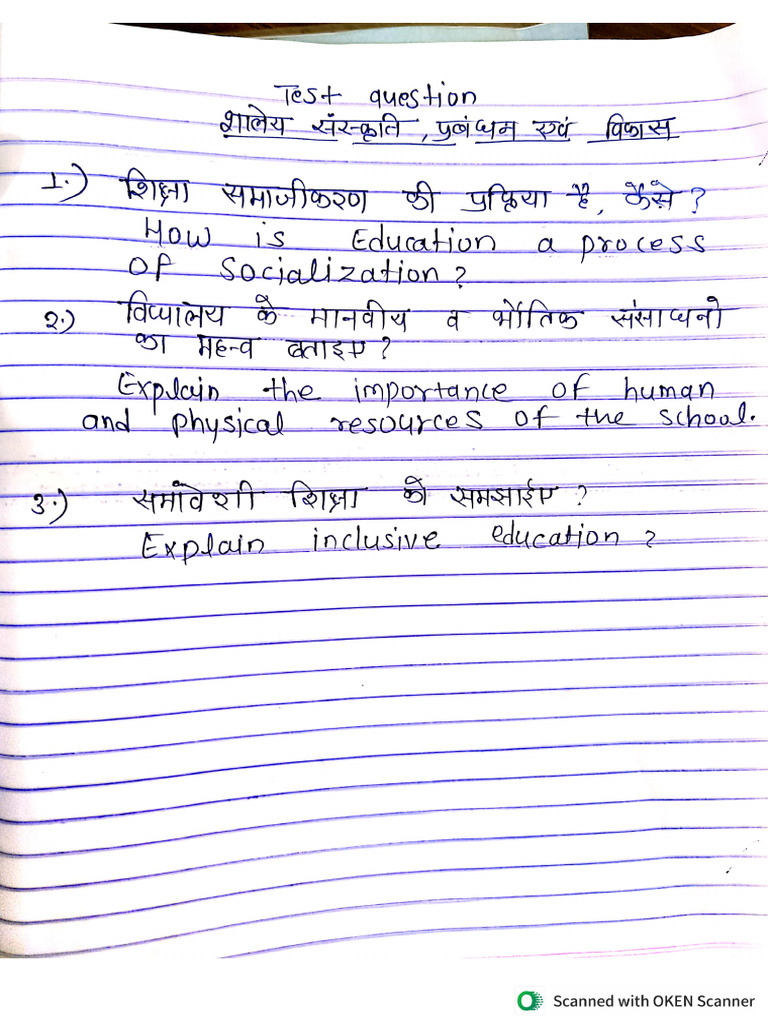 Test question
शालेय संस्कृति, प्रबंधन एवं विकास
1.) शिक्षा समाजीकरण की प्रक्रिया है, कैसे?
How is Education a process
of Socialization?
2.) विद्यालय के मानवीय व भौतिक संसाधनो
का महत्व बताइए?
Explain the importance of human
and physical resources of the school.
3.) समावेशी शिक्षा को समझाईए?
Explain inclusive education?
Scanned with OKEN Scanner